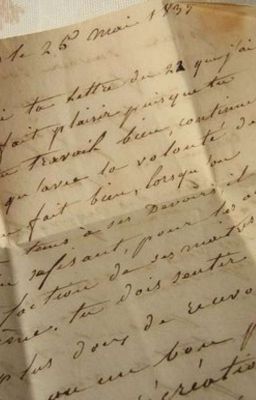 le 26 Mai 1835
ta lettre du 22 que j'ai
fait plaisir puisque tu
travail bien, continue
qu'avec la volonté de
fait bien, lorsqu'on
tems à ses devoirs il
pour les
faction de ses maitres
tu dois sentir
plus doux de
ou un bon p
récréation